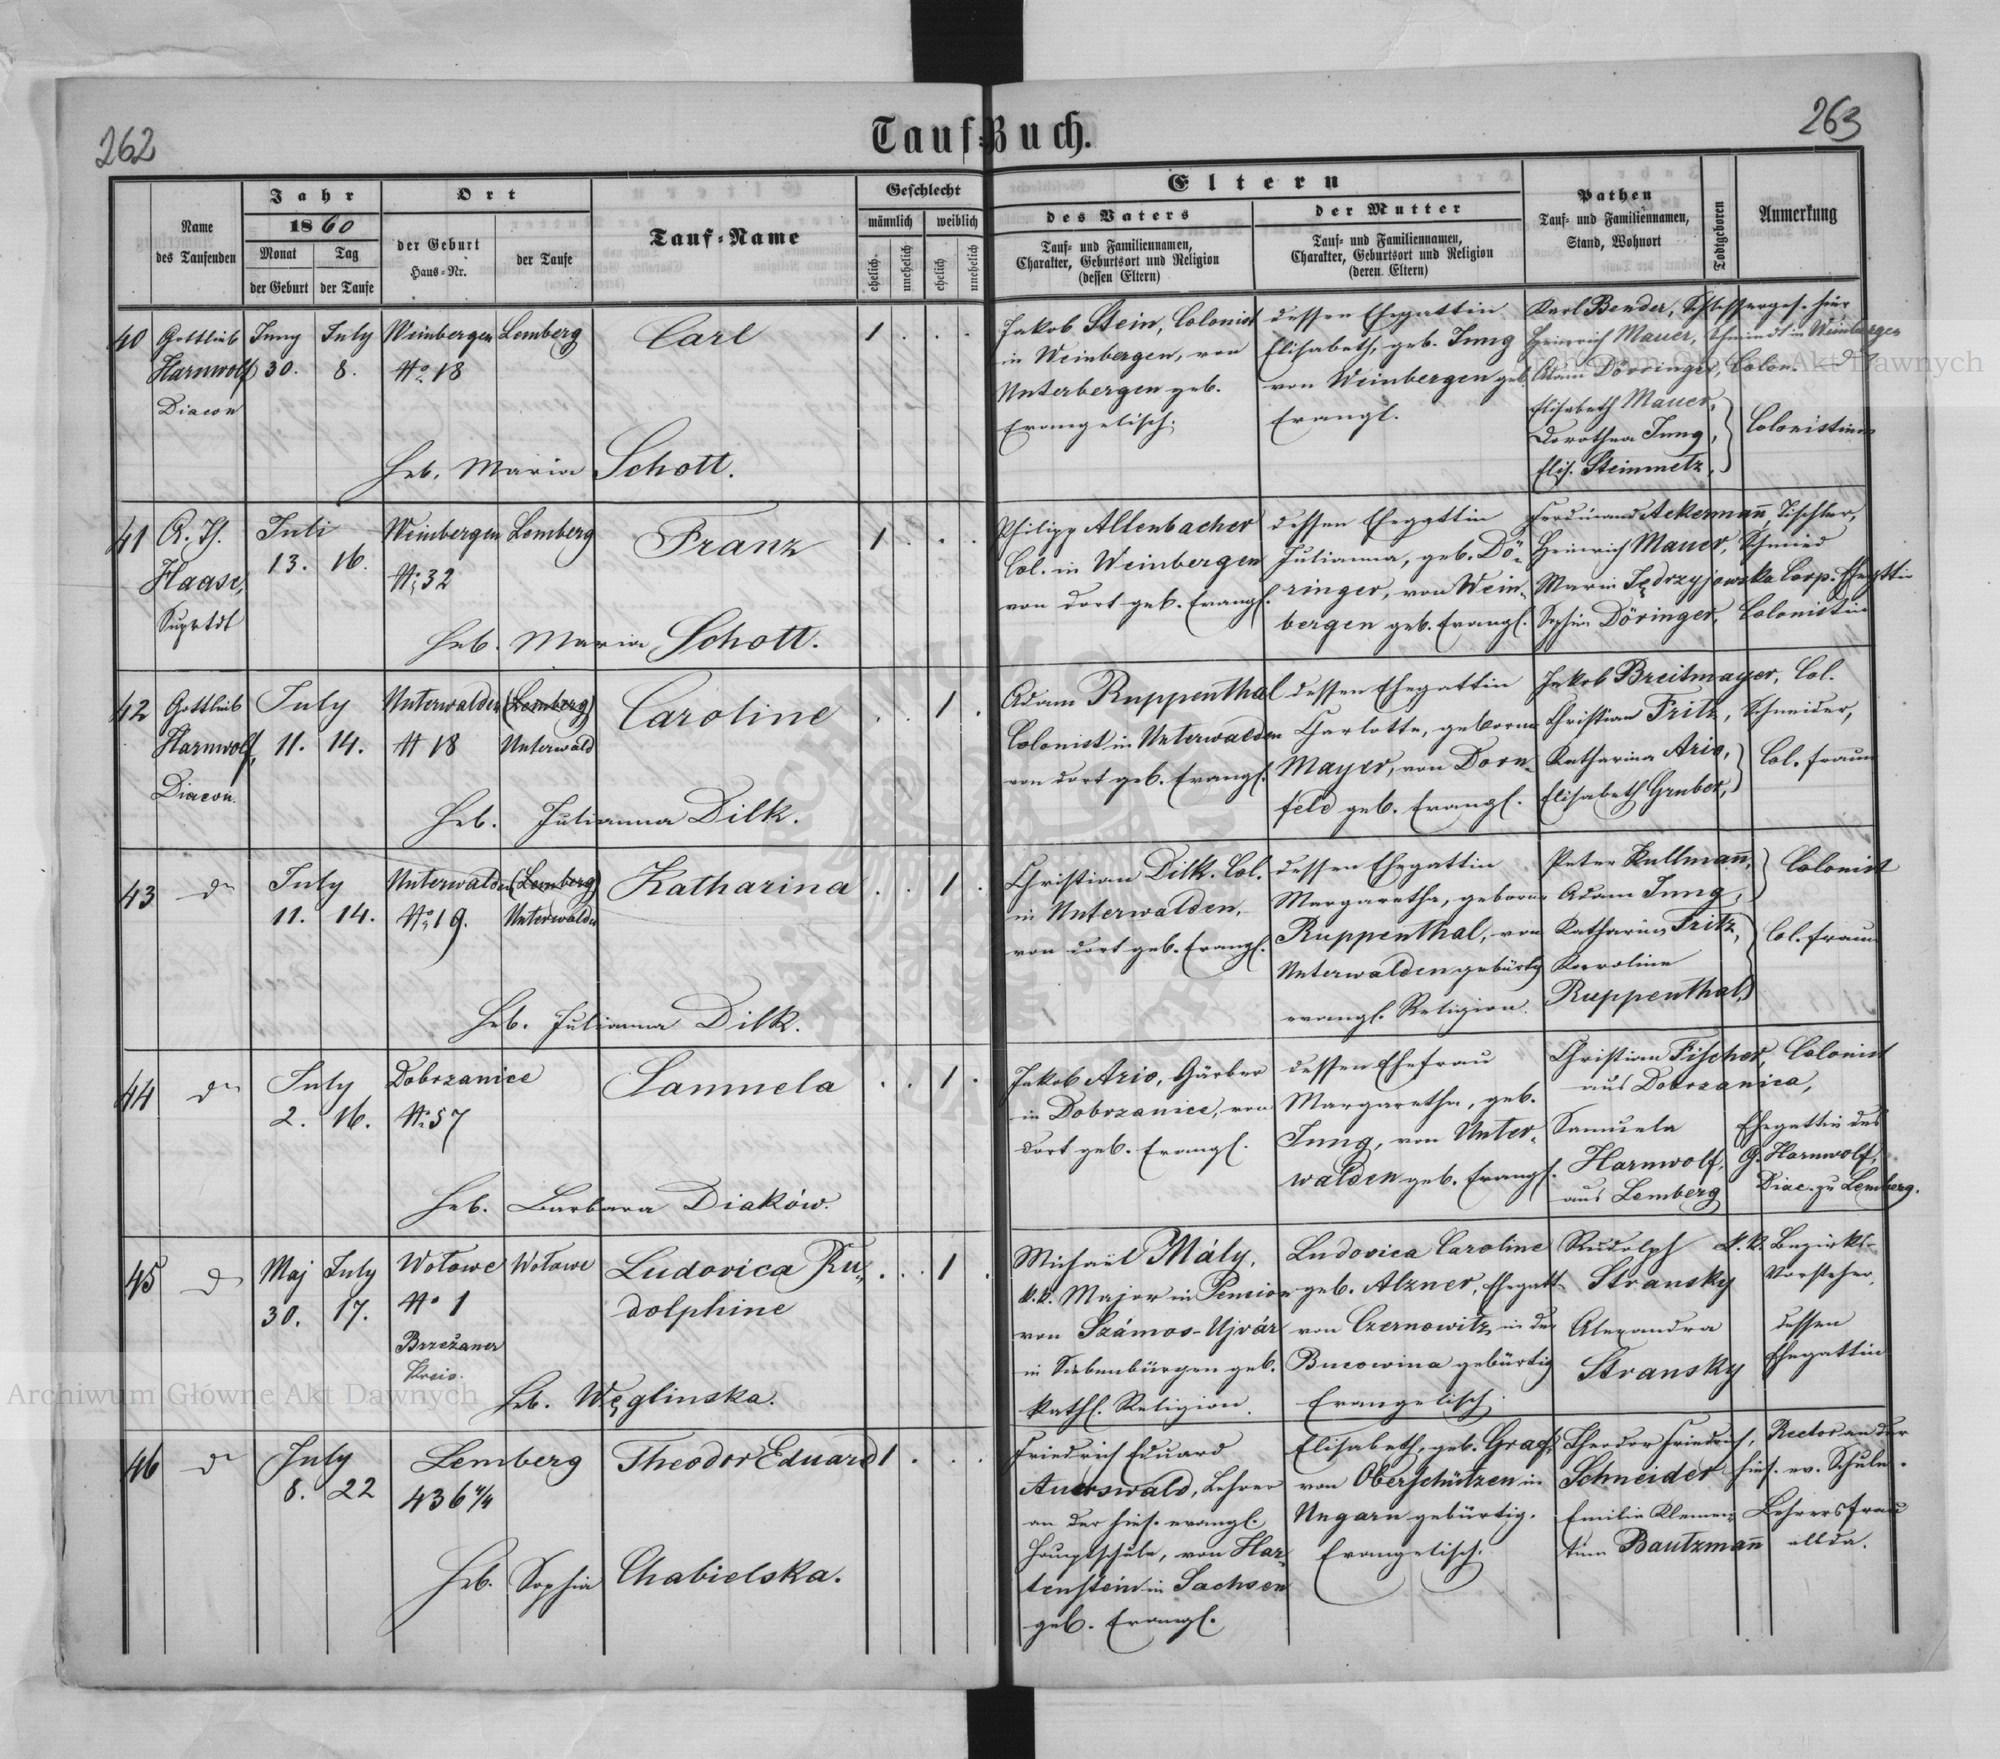 262
263
Tauf-Buch.
Name des Taufenden
Jahr
1860
Monat der Geburt
Tag der Taufe
Ort
der Geburt Haus-Nr.
der Taufe
Tauf-Name
Geschlecht
männlich
weiblich
ehelich
unehelich
ehelich
unehelich
Eltern
des Vaters
Tauf- und Familiennamen, Charakter, Geburtsort und Religion (dessen Eltern)
der Mutter
Tauf- und Familiennamen, Charakter, Geburtsort und Religion (deren Eltern)
Pathen
Tauf- und Familiennamen, Stand, Wohnort
Todtgeboren
Anmerkung
40
Gottlieb
Harnwolf
Diacon
Juny July
30. 8.
Weinbergen
No 18
Lemberg
Carl
1 . . .
Heb. Maria Schott.
Jakob Stein, Colonist
in Weinbergen, von
Unterbergen geb.
Evangelisch.
dessen Ehegattin
Elisabeth, geb. Jung
von Weinbergen geb.
Evangl.
Karl Bender, Schlosserges. hier
Heinrich Mauer, Schmiedt in Weinbergen
Adam Dörringer, Colon.
Elisabeth Mauer,
Dorothea Jung,
Elis. Steinmetz,
Colonistinen
41
A. Th.
Haase,
Suprtdt
Juli
13. 16.
Weinbergen
No 32
Lemberg
Franz
1 . . .
Heb. Maria Schott.
Philipp Altenbacher
Col. in Weinbergen
von dort geb. Evangl.
dessen Ehegattin
Julianna, geb. Dö-
ringer, von Wein-
bergen geb. Evangl.
Ferdinand Ackermañ, Tischler,
Heinrich Mauer, Schmied
Maria Jędrzyjowska Corp. Ehegttin
Sophia Döringer, Colonistin
42
Gottlieb
Harnwolf,
Diacon.
July
11. 14.
Unterwalden
No 18
(Lemberg)
Unterwald
Caroline
. . 1 .
Heb. Julianna Dilk.
Adam Ruppenthal
Colonist in Unterwalden
von dort geb. Evangl.
dessen Ehegattin
Charlotte, geborne
Mayer, von Dorn-
feld geb. Evangl.
Jakob Breitmayer, Col.
Christian Fritz, Schneider,
Katharina Ario,
Elisabeth Gruber,
Col. fraun
43
do
July
11. 14.
Unterwalden
No 19.
(Lemberg)
Unterwalden
Katharina
. . 1 .
Heb. Julianna Dilk.
Christian Dilk. Col.
in Unterwalden,
von dort geb. Evangl.
dessen Ehegattin
Margaretha, geborne
Ruppenthal, von
Unterwalden gebürtg
evangl. Religion.
Peter Kullmañ,
Adam Jung,
Colonist
Katharina Fritz,
Karoline
Ruppenthal,
Col. fraun
44
do
July
2. 16.
Dobrzanice
No 57
Samuela
. . 1 .
Heb. Barbara Diaków.
Jakob Ario, Gärber
in Dobrzanice, von
dort geb. Evangl.
dessen Ehefrau
Margaretha, geb.
Jung, von Unter-
walden geb. Evangl.
Christian Fischer, Colonist
aus Dobrzanica,
Samuela
Harnwolf,
aus Lemberg
Ehegattin des
G. Harnwolf,
Diac. zu Lemberg.
45
do
Maj July
30. 17.
Wołowe
No 1
Brzeżaner
Kreis.
Wołowe
Ludovica Ru-
dolphine
. . 1 .
Heb. Węglinska.
Michael Mály,
k.k. Major in Pension
von Számos-Ujvár
in Siebenbürgen geb.
kathl. Religion.
Ludovica Caroline
geb. Alzner, Ehegatt.
von Czernowitz in der
Bucowina gebürtig
Evangelisch.
Rudolph
Stransky
k.k. Bezirks-
Vorsteher,
Alexandra
Stransky
dessen
Ehegattin
46
do
July
8. 22
Lemberg
436 4/4
Theodor Eduard
1 . . .
Heb. Sophia Chabielska.
Friedrich Eduard
Auerswald, Lehrer
an der hies. evangl.
Hauptschule, von Har-
tenstein in Sachsen
geb. Evangl.
Elisabeth, geb. Graf,
von Oberschützen in
Ungarn gebürtig.
Evangelisch.
Theodor Friedrich,
Schneider
Rector an der
hies. ev. Schule.
Emilie Klemen-
tine Bautzmañ
Lehrersfrau
allda.
Archiwum Główne Akt Dawnych
Archiwum Główne Akt Dawnych